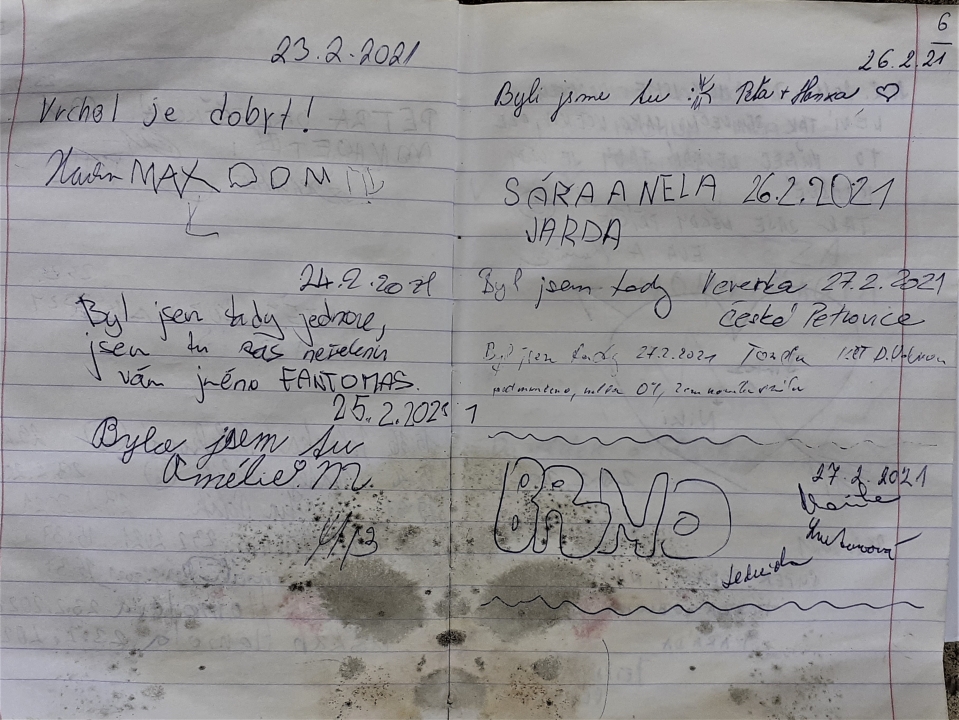 23.2.2021
Vrchol je dobyt!
MAX DOM
24.2.2021
Byl jsem tady jednou,
jsem tu zas neřeknu
vám jméno FANTOMAS.
25.2.2021
Byla jsem tu
Amélie M.
6
26.2.21
Byli jsme tu Péťa + Hanka ♡
SÁRA A NELA 26.2.2021
JARDA
Byl jsem tady Veverka 27.2.2021
České Petrovice
Byl jsem tady 27.2.2021 Tonda
1
BRNO
27.2.2021